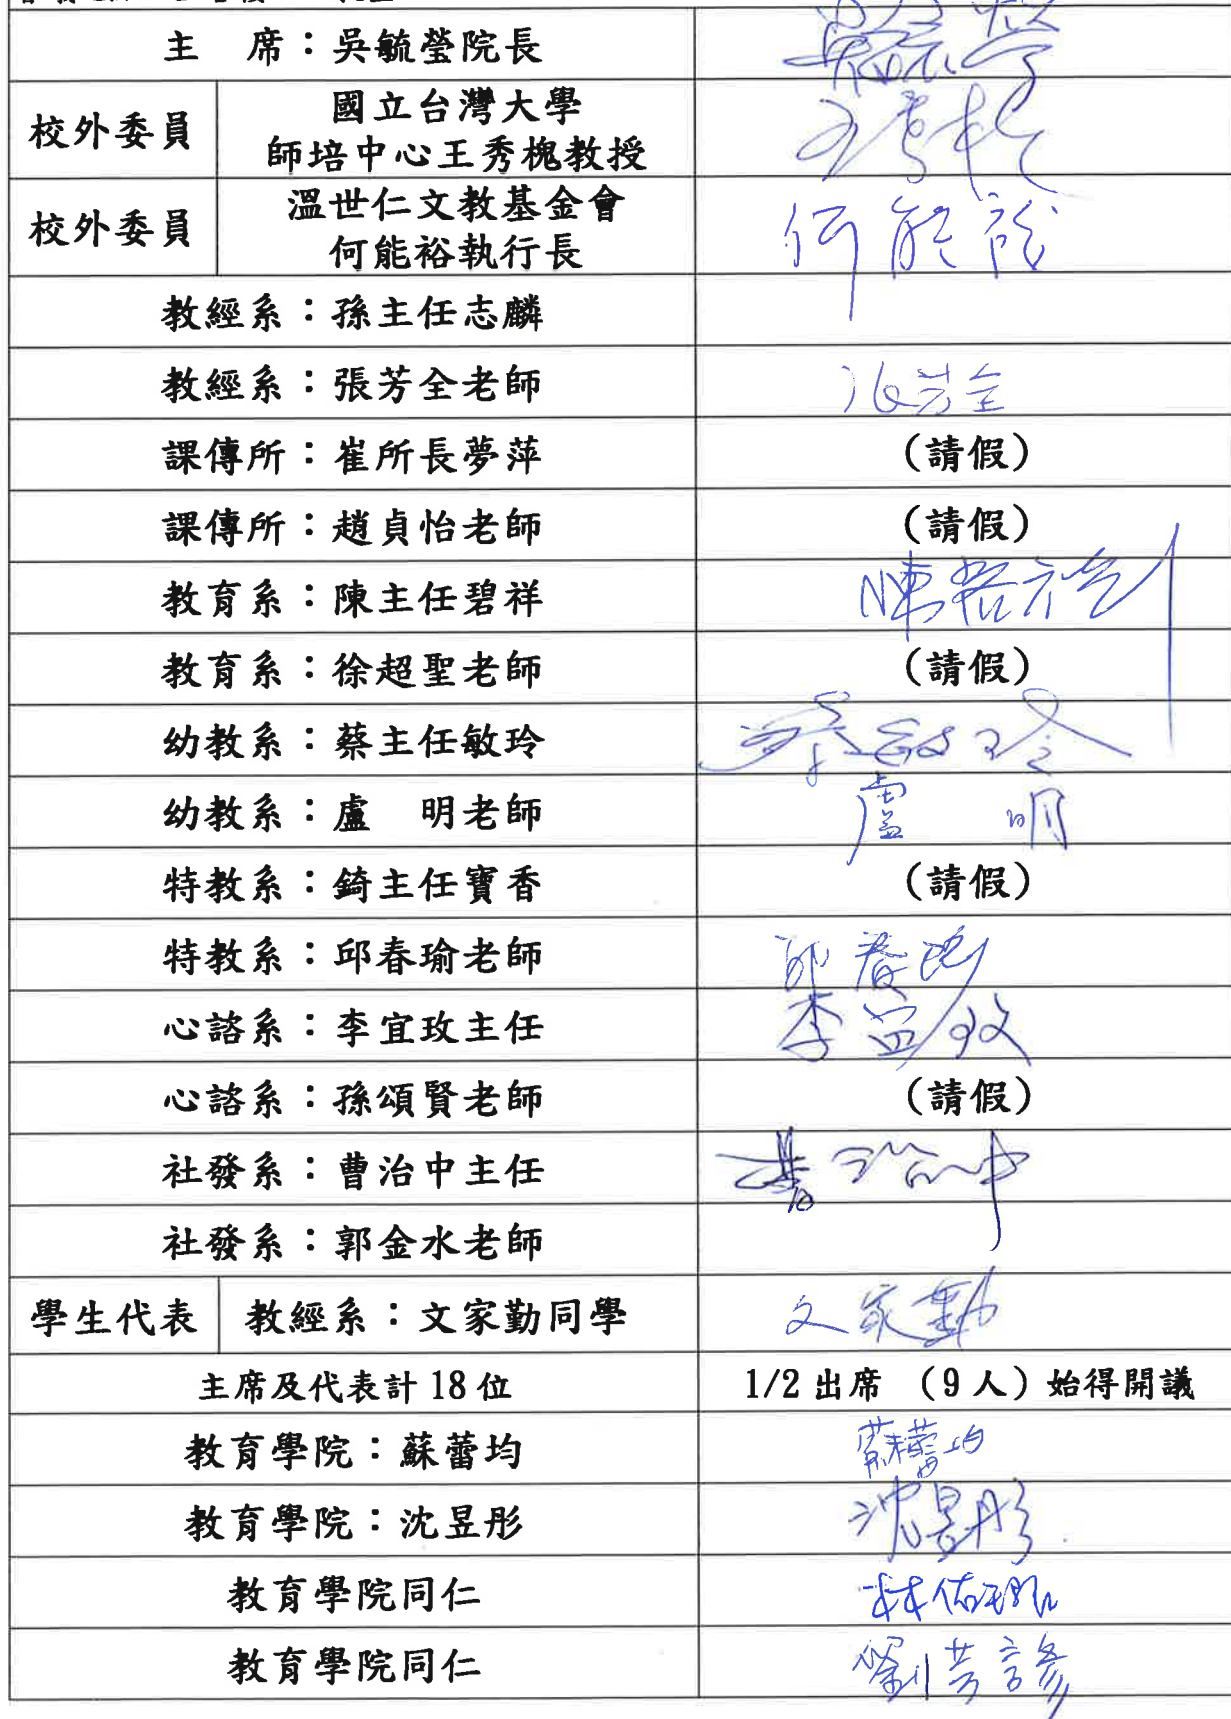 主　席：吳毓瑩院長
校外委員 國立台灣大學
師培中心王秀槐教授
校外委員 溫世仁文教基金會
何能裕執行長
何能裕
教經系：孫主任志麟
教經系：張芳全老師 張芳全
課傳所：崔所長夢萍 （請假）
課傳所：趙貞怡老師 （請假）
教育系：陳主任碧祥 陳碧祥
教育系：徐超聖老師 （請假）
幼教系：蔡主任敏玲 蔡敏玲
幼教系：盧　明老師 盧　明
特教系：錡主任寶香 （請假）
特教系：邱春瑜老師 邱春瑜
心諮系：李宜玫主任 李宜玫
心諮系：孫頌賢老師 （請假）
社發系：曹治中主任 曹治中
社發系：郭金水老師
學生代表 教經系：文家勤同學 文家勤
主席及代表計 18 位 1/2 出席 （9 人）始得開議
教育學院：蘇蕾均 蘇蕾均
教育學院：沈昱彤 沈昱彤
教育學院同仁
教育學院同仁